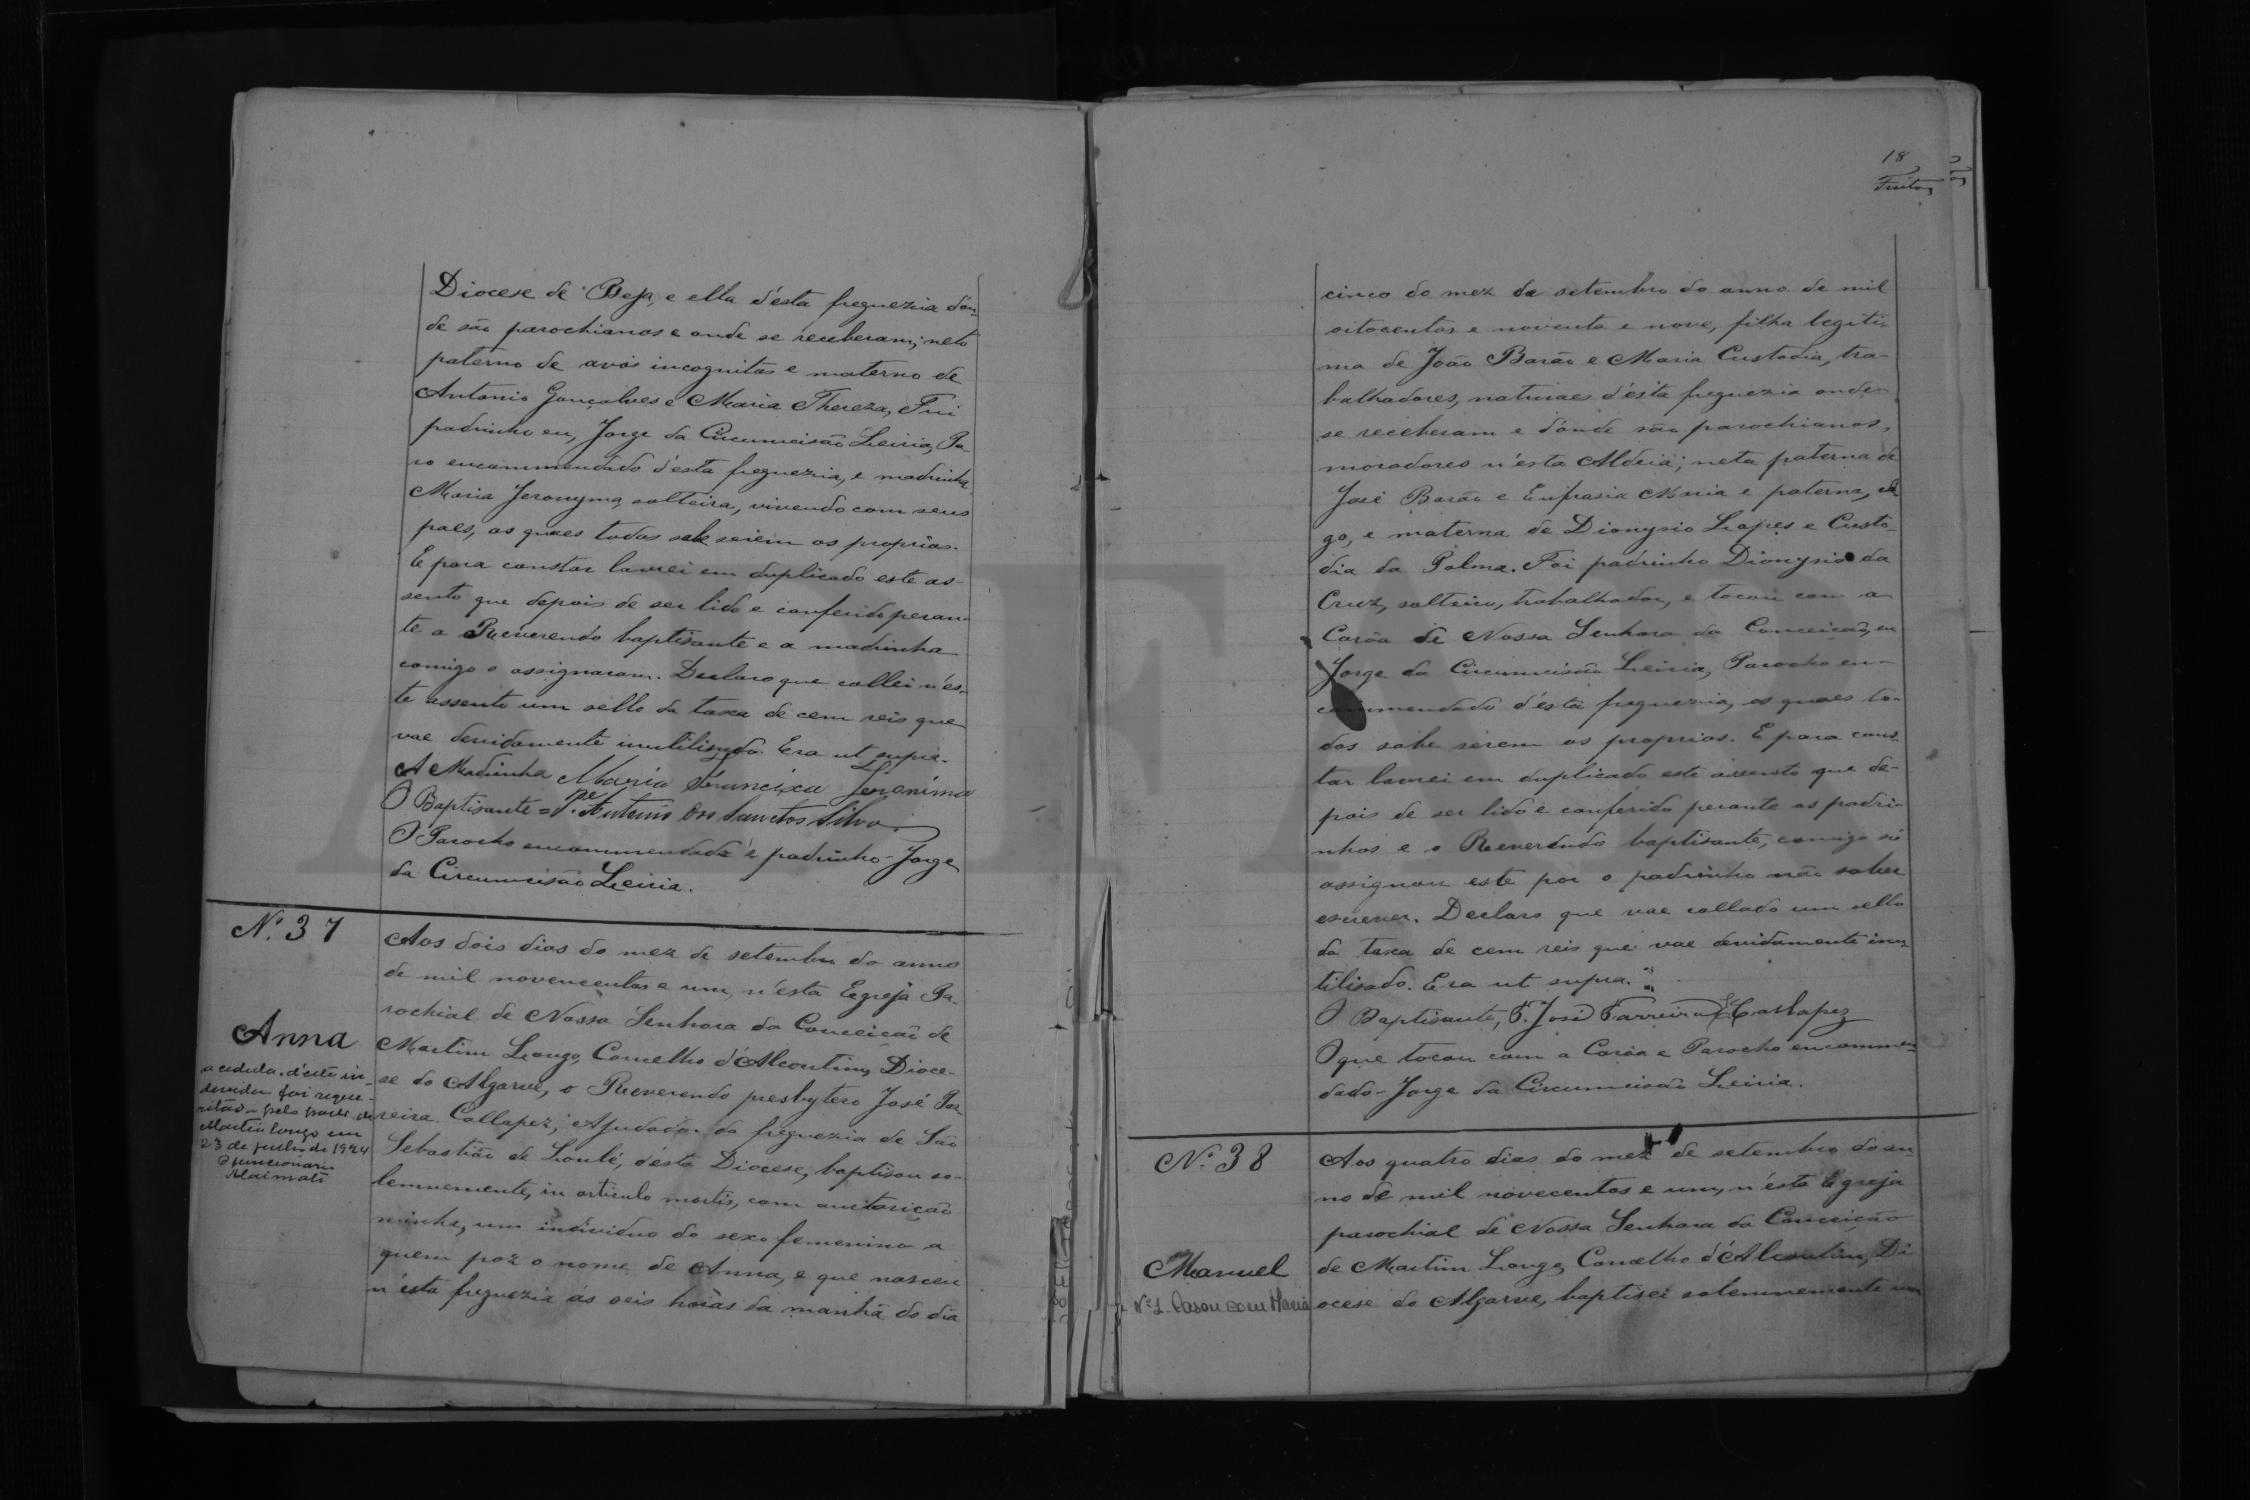 Diocese de Beja, e ella d'esta freguezia d'on-
de são parochianos e onde se receberam; neto
paterno de avós incognitos e materno de
Antonio Gonçalves e Maria Thereza, Fui
padrinho eu, Jorge da Circumcisão Leiria, Pa-
ro encommendado d'esta freguezia, e madrinha
Maria Jeronyma, solteira, vivendo com seus
paes, os quaes todos sei serem os proprios.
E para constar lavrei em duplicado este as-
sento que depois de ser lido e conferido peran-
te o Reverendo baptisante e a madrinha
comigo o assignaram. Declaro que collei n'es-
te assento um sello da taxa de cem reis que
vae devidamente inutilisado. Era ut supra.
A Madrinha Maria Francisca Jeronima
O Baptisante = Pe. Antonio dos Sanctos Silva
O Parocho encommendado e padrinho - Jorge
da Circumcisão Leiria.
N.º 37
Anna
a cedula d'este in-
dividuo foi reque-
ritada pelo posto de
Martin longo em
23 de julho de 1924
O funcionario
Aos dois dias do mez de setembro do anno
de mil novecentos e um, n'esta Egreja Pa-
rochial de Nossa Senhora da Conceição de
Martim Longo, Concelho d'Alcoutim, Dioce-
se do Algarve, o Reverendo presbytero José Far-
reira Callapez, Ajudador da freguezia de São
Sebastião de Loulé, d'esta Diocese, baptisou so-
lemnemente, in articulo mortis, com auctorição
minha, um individuo do sexo femenino a
quem poz o nome de Anna, e que nasceu
n'esta freguezia ás seis horas da manhã do dia
18
Freitas
cinco do mez de setembro do anno de mil
oitocentos e noventa e nove, filha legiti-
ma de João Barão e Maria Custodia, tra-
balhadores, naturaes d'esta freguezia onde
se receberam e d'onde são parochianos,
moradores n'esta Aldeia; neta paterna de
José Barão e Eufrasia Maria e paterna, di-
go, e materna de Dionysio Lopes e Custo-
dia da Palma. Foi padrinho Dionysio da
Cruz, solteiro, trabalhador, e tocou com a
Corôa de Nossa Senhora da Conceição, eu
Jorge da Circumcisão Leiria, Parocho en-
commendado d'esta freguezia, os quaes to-
dos sabe serem os proprios. E para cons-
tar lavrei em duplicado este assento que de-
pois de ser lido e conferido perante os padri-
nhos e o Reverendo baptisante, comigo só
assignou este por o padrinho não saber
escrever. Declaro que vae collado um sello
da taxa de cem reis que vae devidamente inu-
tilisado. Era ut supra.
O Baptisante, P. José Farreira Callapez
O que tocou com a Corôa e Parocho encommen-
dado - Jorge da Circumcisão Leiria.
N.º 38
Manuel
Nº 1 Casou com Maria
Aos quatro dias do mez de setembro do an-
no de mil novecentos e um, n'esta Egreja
parochial de Nossa Senhora da Conceição
de Martim Longo, Concelho d'Alcoutim, Di-
ocese do Algarve, baptisei solemnemente um
ADFAR